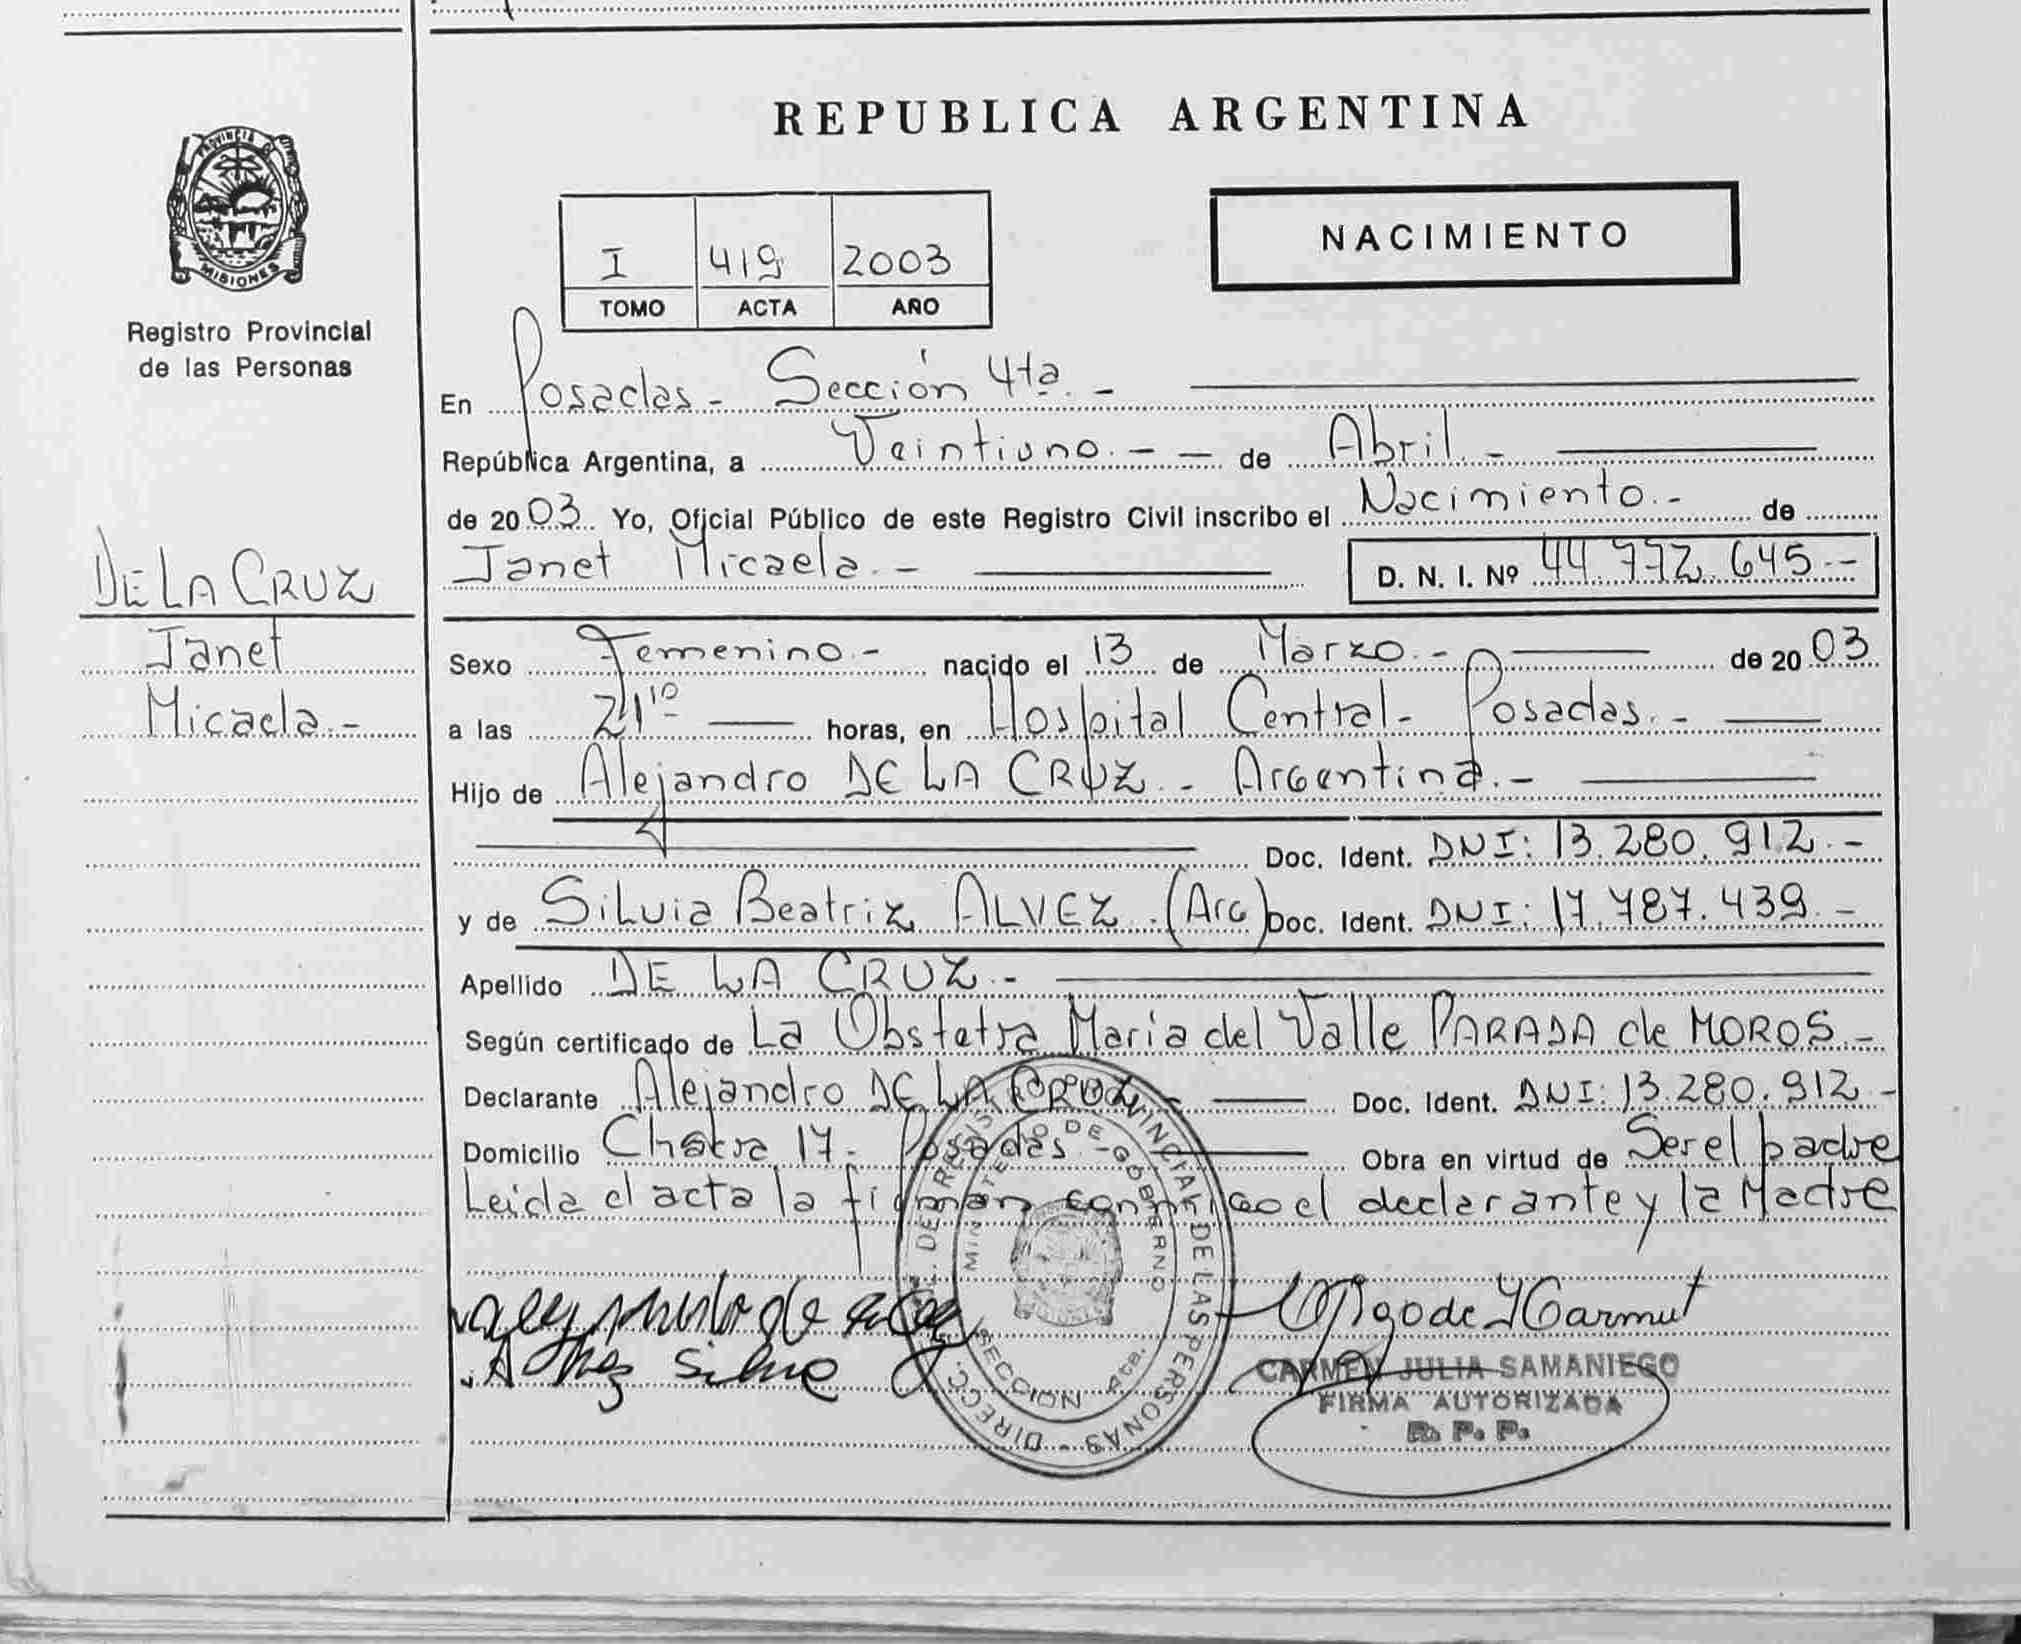 REPUBLICA ARGENTINA
PROVINCIA DE
MISIONES
Registro Provincial
de las Personas
NACIMIENTO
I 419 2003
TOMO ACTA AÑO
En Posadas - Sección 4ta. -
República Argentina, a Veintiuno. - - de Abril. -
de 2003 Yo, Oficial Público de este Registro Civil inscribo el Nacimiento. - de
Janet Micaela. - D. N. I. Nº 44.772.645. -
DE LA CRUZ
Janet
Micaela. -
Sexo Femenino. - nacido el 13 de Marzo. - de 2003
a las 21¹⁰ horas, en Hospital Central - Posadas. -
Hijo de Alejandro DE LA CRUZ. - Argentina. -
Doc. Ident. DNI: 13.280.912. -
y de Silvia Beatriz ALVEZ. (Arg) Doc. Ident. DNI: 17.787.439. -
Apellido DE LA CRUZ. -
Según certificado de La Obstetra Maria del Valle PARADA de MOROS. -
Declarante Alejandro DE LA CRUZ - Doc. Ident. DNI: 13.280.912 -
Domicilio Chacra 17 - Posadas - Obra en virtud de Ser el padre
Leida el acta la firman conmigo el declarante y la Madre
DIRECC. DE REGIST. PROVINCIAL DE LAS PERSONAS -
MINISTERIO DE GOBIERNO
SECCION 4ta.
CARMEN JULIA SAMANIEGO
FIRMA AUTORIZADA
R. P. P.